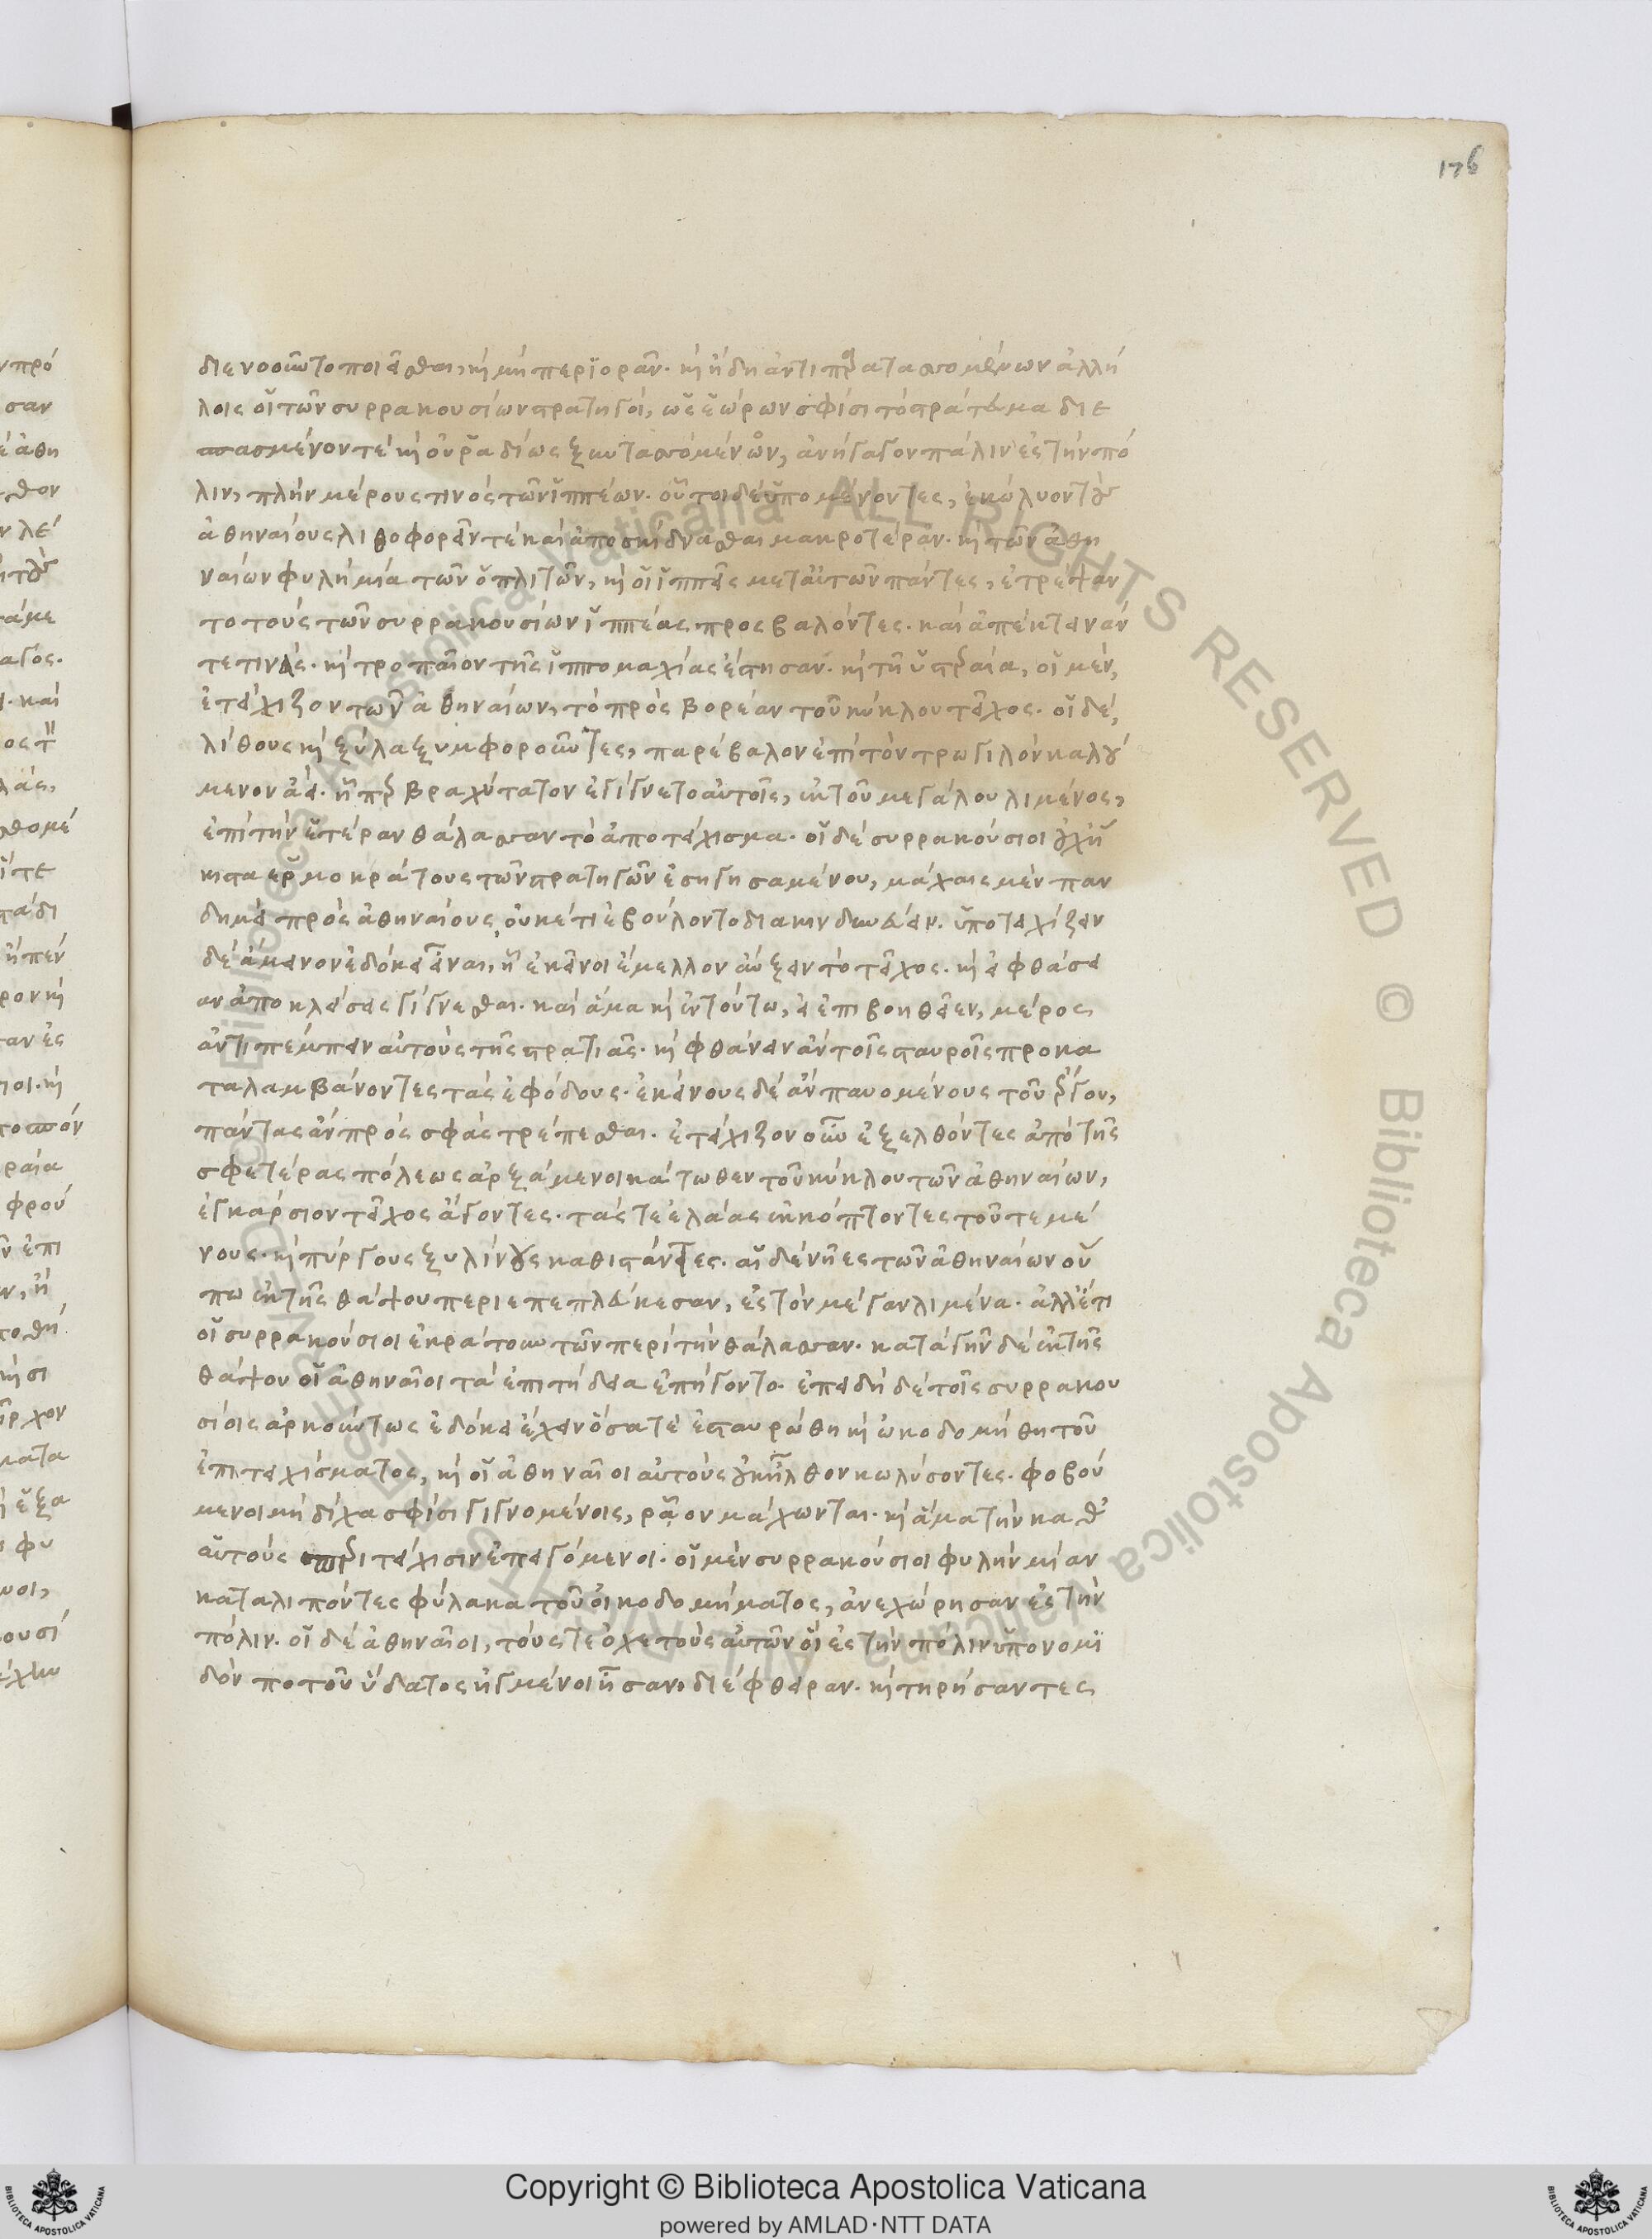 176
διενοοῦντο ποιεῖσθαι, καὶ μὴ περιϊορᾶν. καὶ ἤδη ἀντιπαρατασσομένων ἀλλή
λοις οἱ τῶν συρρακουσίων στρατηγοί, ὡς ἑώρων σφίσι τὸ στράτευμα διε
σπασμένον τὲ καὶ οὐ ῥαδίως ξυντασσόμενον, ἀνήγαγον πάλιν ἐς τὴν πό
λιν, πλὴν μέρους τινὸς τῶν ἱππέων. οὗτοι δὲ ὑπομένοντες, ἐκώλυον τοὺς
ἀθηναίους λιθοφορεῖν τὲ καὶ ἀποσκίδνασθαι μακροτέραν. καὶ τῶν ἀθη
ναίων φυλὴ μία τῶν ὁπλιτῶν, καὶ οἱ ἱππεῖς μετ' αὐτῶν πάντες, ἐτρέψαν
το τοὺς τῶν συρρακουσίων ἱππέας προσβαλόντες. καὶ ἀπέκτειναν
τέ τινας. καὶ τροπαῖον τῆς ἱππομαχίας ἔστησαν. καὶ τῇ ὑστεραία, οἱ μὲν,
ἐτείχιζον τῶν ἀθηναίων, τὸ πρὸς βορέαν τοῦ κύκλου τεῖχος. οἱ δὲ,
λίθους καὶ ξύλα ξυμφοροῦντες, παρέβαλον ἐπὶ τὸν τρωγίλον καλού
μενον ἀεί. ἧπερ βραχύτατον ἐγίγνετο αὐτοῖς, ἐκ τοῦ μεγάλου λιμένος,
ἐπὶ τὴν ἑτέραν θάλασσαν τὸ ἀποτείχισμα. οἱ δὲ συρρακούσιοι οὐχ ἥ
κιστα ἑρμοκράτους τῶν στρατηγῶν ἐσηγησαμένου, μάχαις μὲν παν
δημεὶ πρὸς ἀθηναίους οὐκέτι ἐβούλοντο διακινδυνεύειν. ὑποτειχίζειν
δὲ ἄμεινον ἐδόκει εἶναι, ᾗ ἐκεῖνοι ἔμελλον ἄξειν τὸ τεῖχος. καὶ εἰ φθάσει
αν ἀποκλείσεις γίγνεσθαι. καὶ ἅμα καὶ ἐν τούτω, εἰ ἐπιβοηθοῖεν, μέρος
ἀντιπέμπειν αὐτοὺς τῆς στρατιᾶς. καὶ φθάνειν ἂν τοῖς σταυροῖς προκα
ταλαμβάνοντες τὰς ἐφόδους. ἐκείνους δὲ ἂν παυομένους τοῦ ἔργου,
πάντας ἂν πρὸς σφᾶς τρέπεσθαι. ἐτείχιζον οὖν ἐξελθόντες ἀπὸ τῆς
σφετέρας πόλεως ἀρξάμενοι κάτωθεν τοῦ κύκλου τῶν ἀθηναίων,
ἐγκάρσιον τεῖχος ἄγοντες. τάς τε ἐλάας ἐκκόπτοντες τοῦ τεμέ
νους. καὶ πύργους ξυλίνους καθιστάντες. αἱ δὲ νῆες τῶν ἀθηναίων οὔ
πω ἐκ τῆς θάψου περιεπεπλεύκεσαν, ἐς τὸν μέγαν λιμένα. ἀλλ' ἔτι
οἱ συρρακούσιοι ἐκράτουν τῶν περὶ τὴν θάλασσαν. κατὰ γῆν δὲ ἐκ τῆς
θάψου οἱ ἀθηναῖοι τὰ ἐπιτήδεια ἐπήγοντο. ἐπειδὴ δὲ τοῖς συρρακου
σίοις ἀρκούντως ἐδόκει ἔχειν ὅσα τὲ ἐσταυρώθη καὶ ὠκοδομήθη τοῦ
ἐπιτειχίσματος, καὶ οἱ ἀθηναῖοι αὐτοὺς οὐκ ἦλθον κωλύσοντες. φοβού
μενοι μὴ δίχα σφίσι γιγνομένοις, ρᾷον μάχωνται. καὶ ἅμα τὴν καθ'
αὑτοὺς περιτείχισιν ἐπειγόμενοι. οἱ μὲν συρρακούσιοι φυλὴν μίαν
καταλιπόντες φύλακα τοῦ οἰκοδομήματος, ἀνεχώρησαν ἐς τὴν
πόλιν. οἱ δὲ ἀθηναῖοι, τούς τε ὀχετοὺς αὐτῶν οἳ ἐς τὴν πόλιν ὑπονομι
δὸν ποτοῦ ὕδατος ἠγμένοι ἦσαν, διέφθειραν. καὶ τηρήσαντες
Copyright © Biblioteca Apostolica Vaticana
powered by AMLAD·NTT DATA